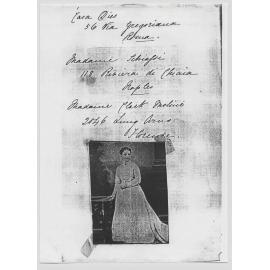 Casa Dies
56 Via Gregoriana
Roma.
Madame Schiafsi
118, Riviera di Chiaia
Naples
Madame Clark Molini
2046 Lung Arno
Florence.